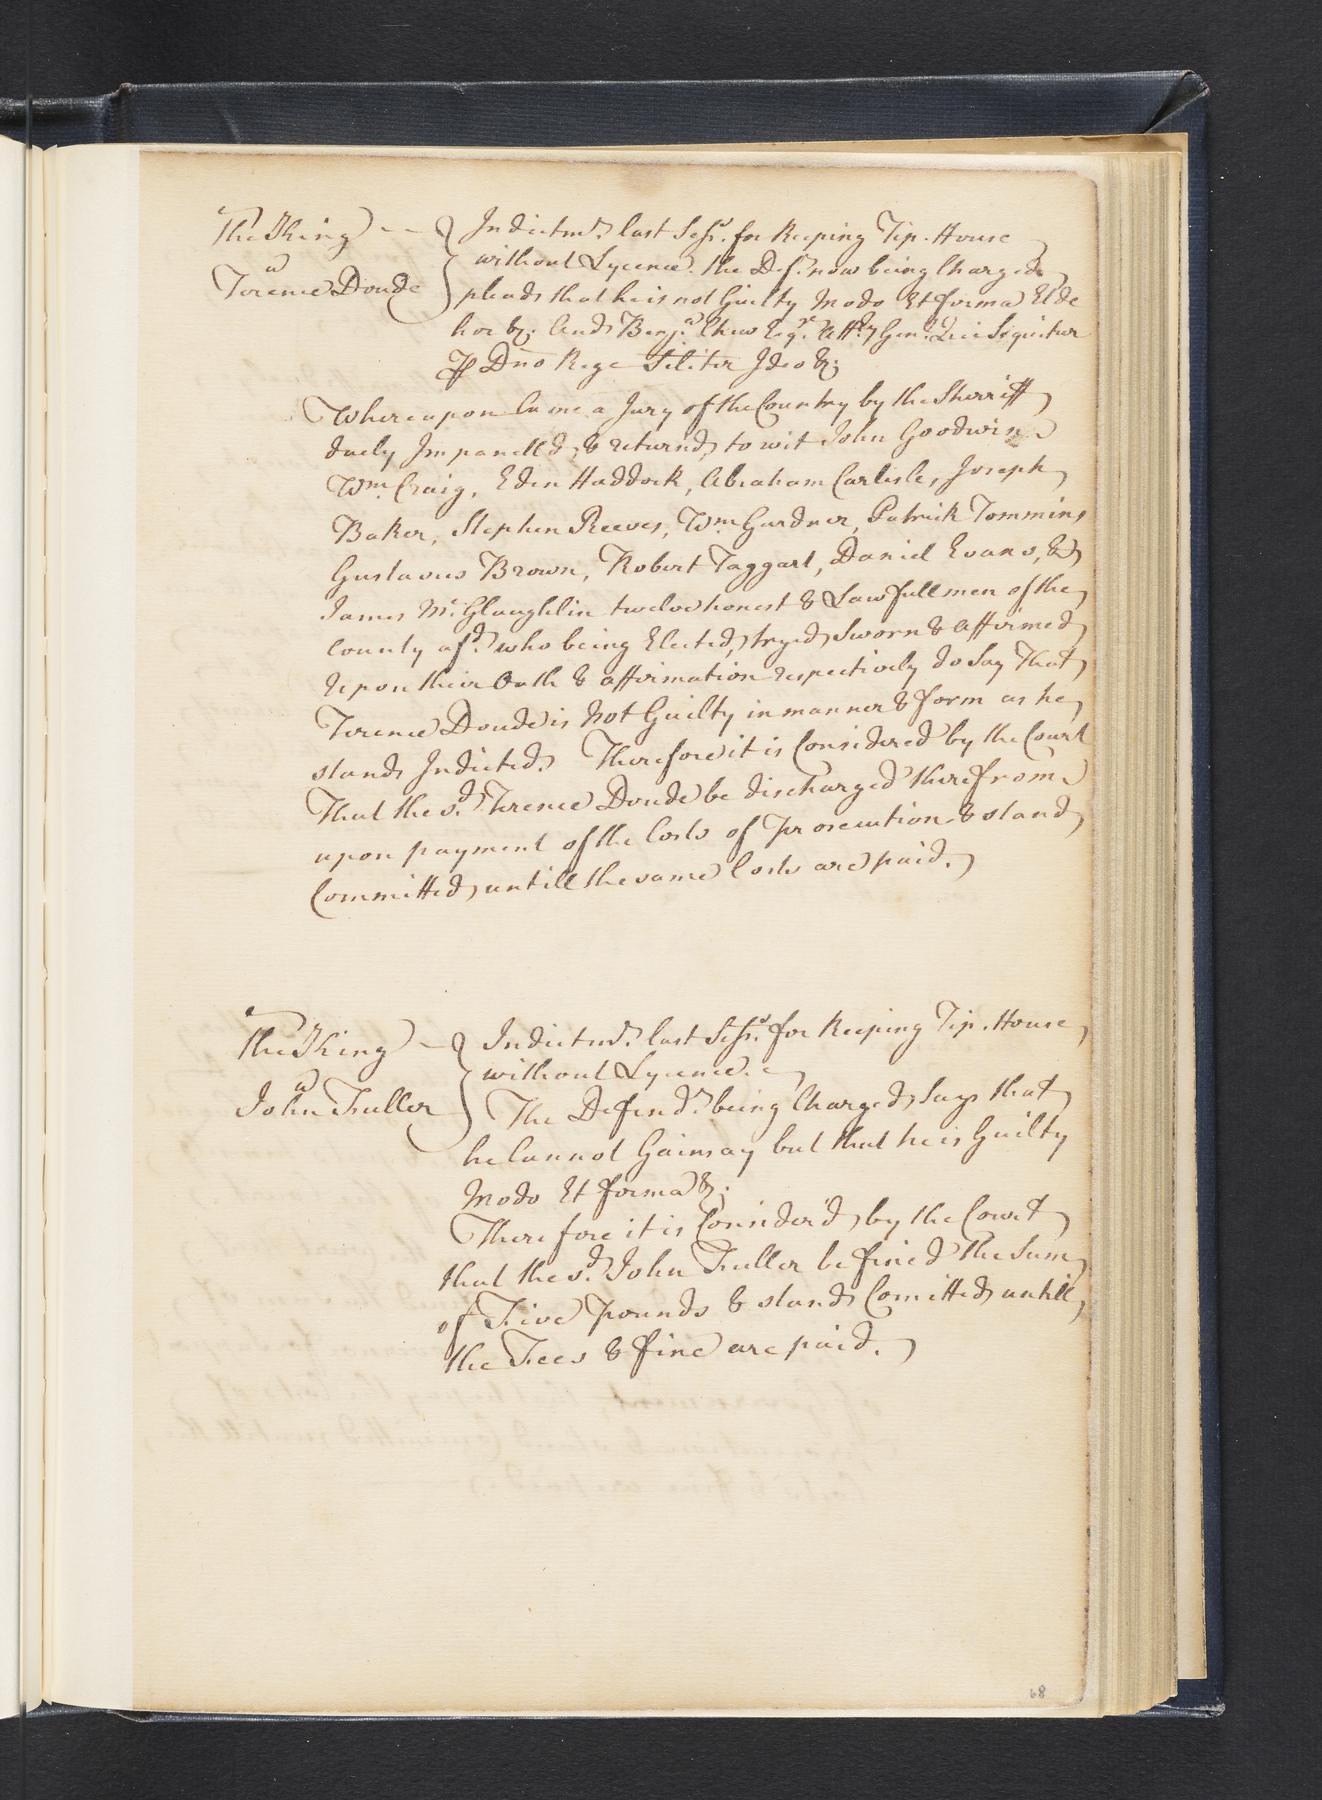 The King - - Indictmt. last Sess. for Keeping Tip. House
agt without Lycence. the Deft. now being Charged
Terence Doude pleads that he is not Guilty Modo Et forma Et de
hoc &c; And Benja. Chew Esqr. Atty. Genl. Qui Sequitur
Pro Dno Rege Similiter Ideo &c;
Whereupon Came a Jury of the Country by the Sherriff
duely Impanelled, & returnd, to wit John Goodwin
Wm. Craig, Eden Haddock, Abraham Carlisle, Joseph
Baker, Stephen Reeves, Wm. Gardner, Patrick Tommins
Gustavus Brown, Robert Taggart, Daniel Evans, &
James McGlaughlin twelve honest & Lawfull men of the
County afsd. who being Elected, tryed, Sworn & affirmed
Upon their Oath & affirmation respectively do Say That
Terence Doude is Not Guilty in manner & form as he
stands Indicted. Therefore it is Considered by the Court
That the sd. Terence Doude be discharged therefrom
upon payment of the Costs of Prosecution & stand
Committed, untill the same Costs are paid.
The King - Indictmt. last Sess. for Keeping Tip. House
agt without Lycence.
John Fuller The Defendt. being Charged, Says that
he Cannot Gainsay but that he is Guilty
Modo Et forma &c;
Therefore it is Considerd, by the Court
that the sd. John Fuller be fined the Sum
of Five Pounds & stands Comitted, untill
the Fees & fine are paid.
68